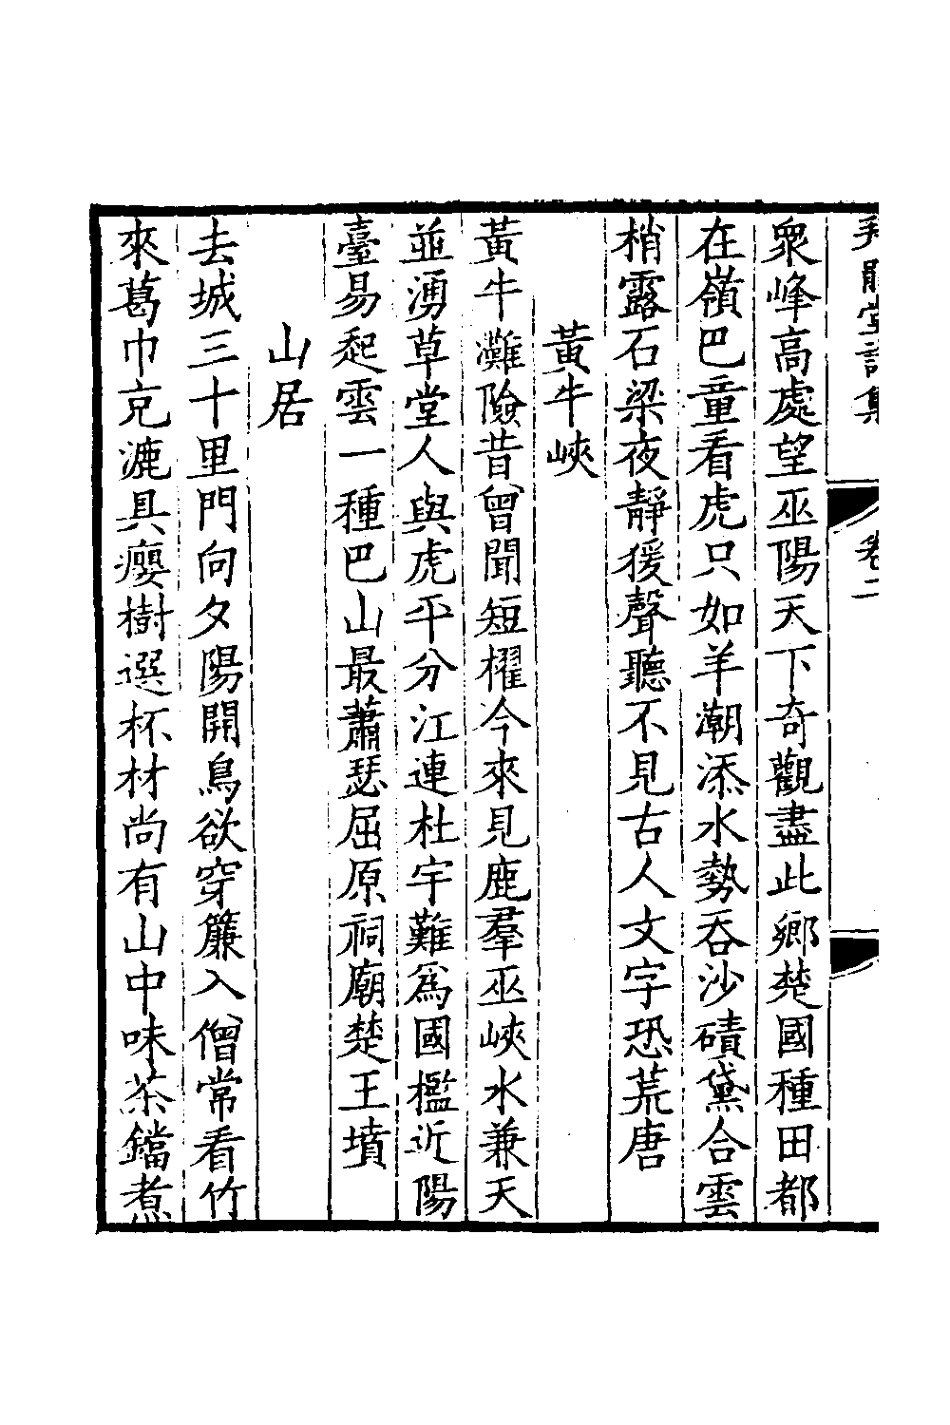 拜鵑堂詩集 卷二
衆峰高處望巫陽天下奇觀盡此鄉楚國種田都
在嶺巴童看虎只如羊潮添水勢吞沙磧黛合雲
梢露石梁夜靜猨聲聽不見古人文字恐荒唐
黃牛峽
黃牛灘險昔曾聞短櫂今來見鹿羣巫峽水兼天
並湧草堂人與虎平分江連杜宇難爲國檻近陽
臺易起雲一種巴山最蕭瑟屈原祠廟楚王墳
山居
去城三十里門向夕陽開鳥欲穿簾入僧常看竹
來葛巾充漉具癭樹選杯材尚有山中味茶鐺煮